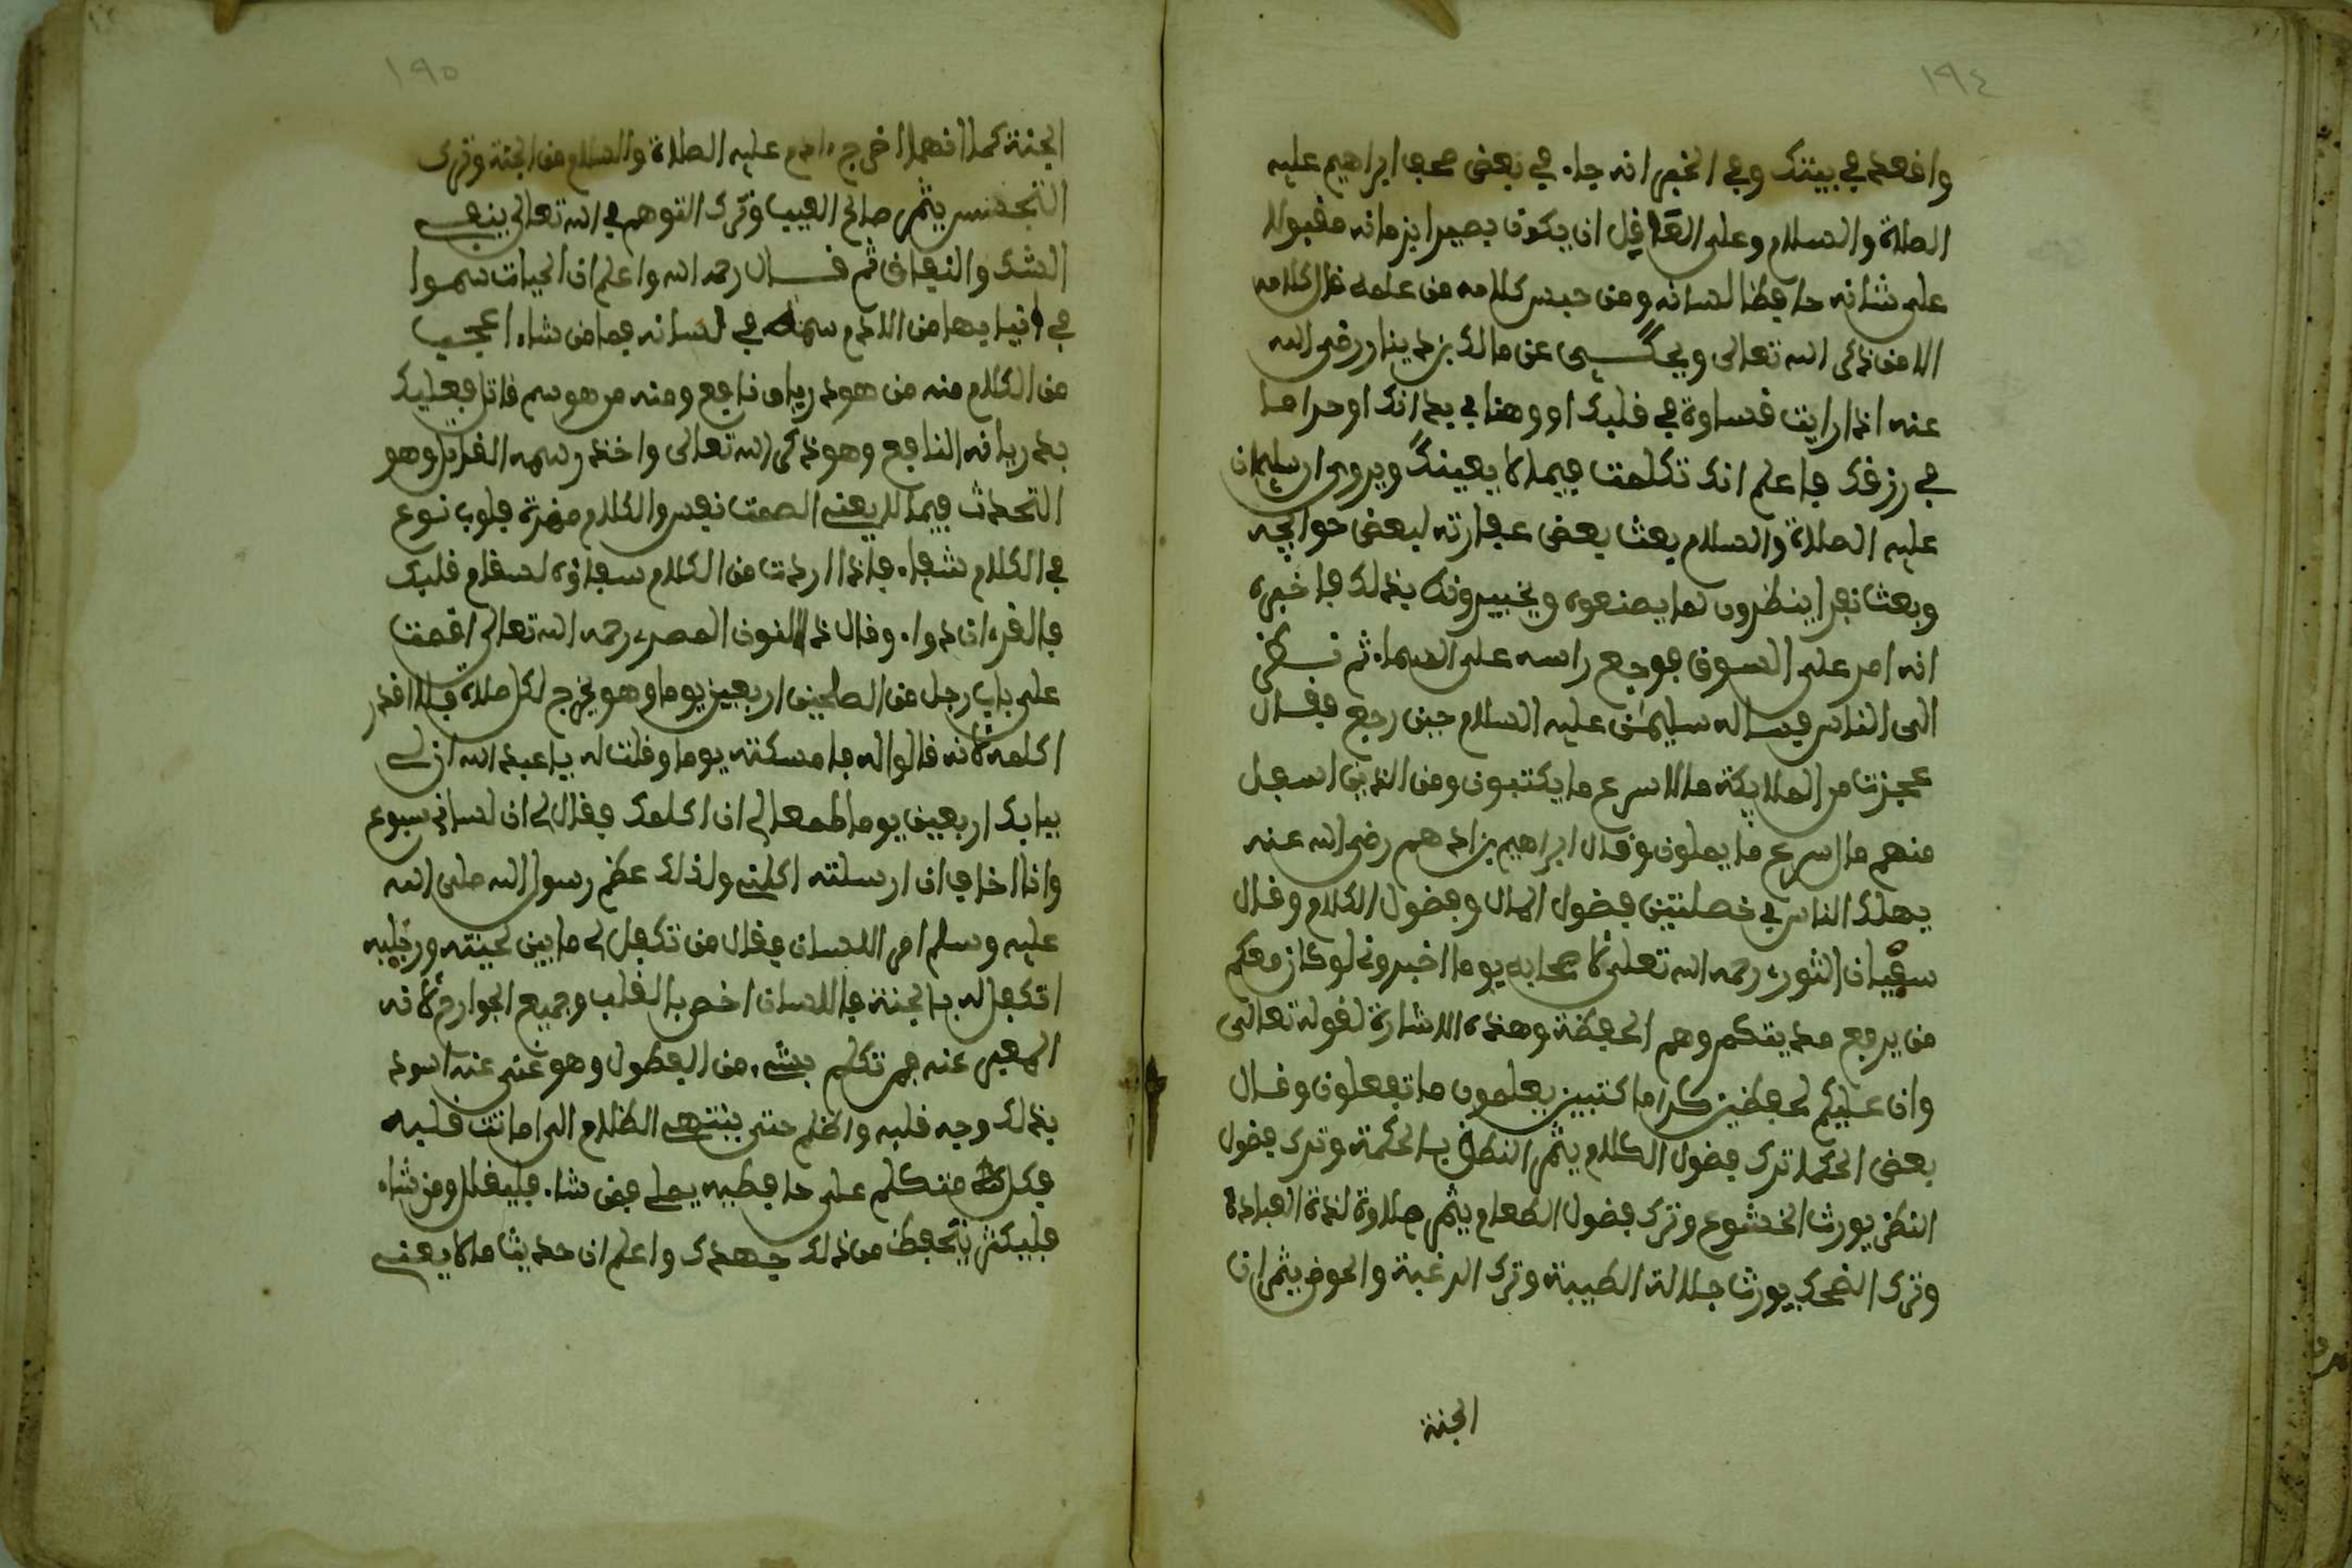 ١٩٤
واقعد في بيتك وفي الخبر انه جاء في بعض صحف ابراهيم عليه
الصلاة والسلام وعلى العاقل ان يكون بصيرا بزمانه مقبولا
على شانه حافظا لسانه ومن حبس كلامه من علمه قل كلامه
الا من ذكر الله تعالى ويحكى عن مالك بن دينار رضي الله
عنه اذا رايت قساوة في قلبك او وهنا في بدانك او حراما
في رزقك فاعلم انك تكلمت فيما لا يعينك ويروى ان سليمان
عليه الصلاة والسلام بعث بعض عفارته لبعض حوايجه
وبعث نفرا ينظرون لما يصنعوه ويخبيرونه بذلك فاخبره
انه امر على السوق فوجع راسه على السماء ثم نظر
الى الناس فيساله سليمن عليه السلام حين رجع فقال
عجبت من الملايكة ما اسرع ما يكتبون ومن الذين اسفل
منهم ما اسرع ما يملون وقال ابراهيم بن ادهم رضي الله عنه
يهلك الناس في خصلتين فضول المال وفضول الكلام وقال
سفيان الثوري رحمه الله تعلى لاصحابه يوما اخبروني لو كان معكم
من يرفع حديثكم وهم الحفظة وهذه الاشارة لقوله تعالى
وان عليكم لحفظين كراما كتبين يعلمون ما تفعلون وقال
بعض الحكما ترك فضول الكلام يثمر النطق بالحكمة وترك فضول
النظر يورث الخشوع وترك فضول الطعام يثمر حلاوة لذة العبادة
وترك الضحك يورث جلالة الطيبة وترك الرغبة والخوض يثمران
الجنة
١٩٥
الجنة كما انهما اخرج ءادم عليه الصلاة والسلام من الجنة وترك
التجسس يثمر صالح العيب وترك التوهم في الله تعالى ينفى
الشك والنفاق ثم قال رحمه الله واعلم ان الحيات سموا
في انيابها من الادم سمه في لسانه فما من شاء اعجب
من الكلام منه من هو درياق نافع ومنه من هو سم قاتل فعليك
بدرياقه النافع وهو ذكر الله تعالى واحذر سمه القاتل وهو
التحدث فيما لا يعنى الصمت نفس والكلام مضرة قلوب نوع
في الكلام شفاء فاذا اردت من الكلام شفاؤه لسقام قلبك
فالقرءان دواء وقال ذا النون المصري رحمه الله تعالى اقمت
على باب رجل من الصلحين اربعين يوما وهو يخرج لكل صلاة فلا اقدر
اكلمه لانه قالوا له فامسكته يوما وقلت له يا عبد الله ان لى
ببابك اربعين يوما طمعا لى ان اكلمك فقال لى ان لساني سبوع
وانا اخاف ان ارسلته اكلنى ولذلك عظم رسول الله صلى الله
عليه وسلم امر اللسان فقال من تكفل لى ما بين لحيته ورجليه
اتكفل له بالجنة فاللسان اخص بالقلب وجميع الجوارح لانه
المعبر عنه فمن تكلم بشيء من الفضول وهو غنى عنه اسود
بذلك وجه قلبه واظلم حتى ينتهى الظلام الى امانت قلبه
فكل متكلم على حافظيه يملى فمن شاء فليقلل ومن شاء
فليكثر فتحفظ من ذلك جهدك واعلم ان حديث ما لا يعنى